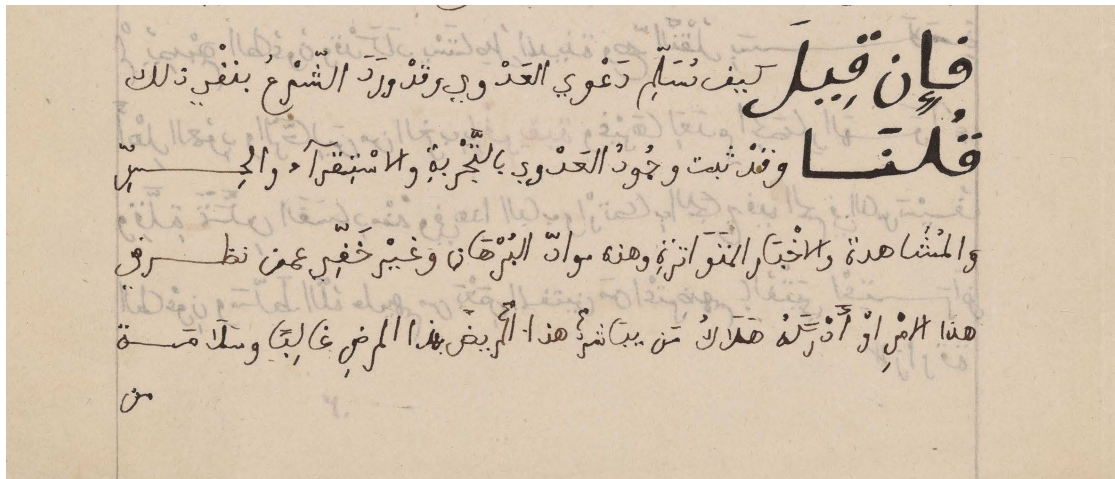 فإن قيلَ كيف نُسَلِّم دَعْوي العَدْوي وقدْ ورَدَ الشَّرْعُ بنفْي ذلك
قُلنَا وقدْ ثبت وجُودُ العَدْوي بالتَّجْرِبةِ والاسْتِقرآء والحِسِّ
والمُشَاهدة والاخْبَار المُتَوَاترَةِ وهذه موادّ البُرْهَانِ وغيْر خَفِيّ عمن نظر في
هذا الامْرِ اوْ أَدْرَكَهُ هَلَاكُ مَن يبَاشرُ هذا المُريضَ بهذا المرضِ غالِبًا وسَلَامَة
من